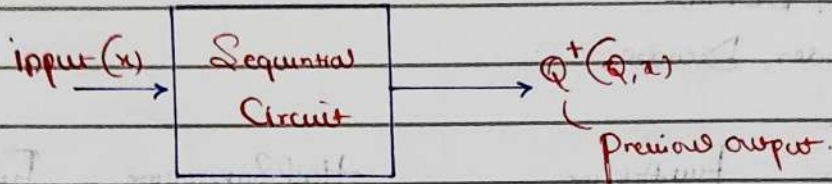 input (x)
Sequential
Circuit
Q⁺(Q,x)
Previous output.